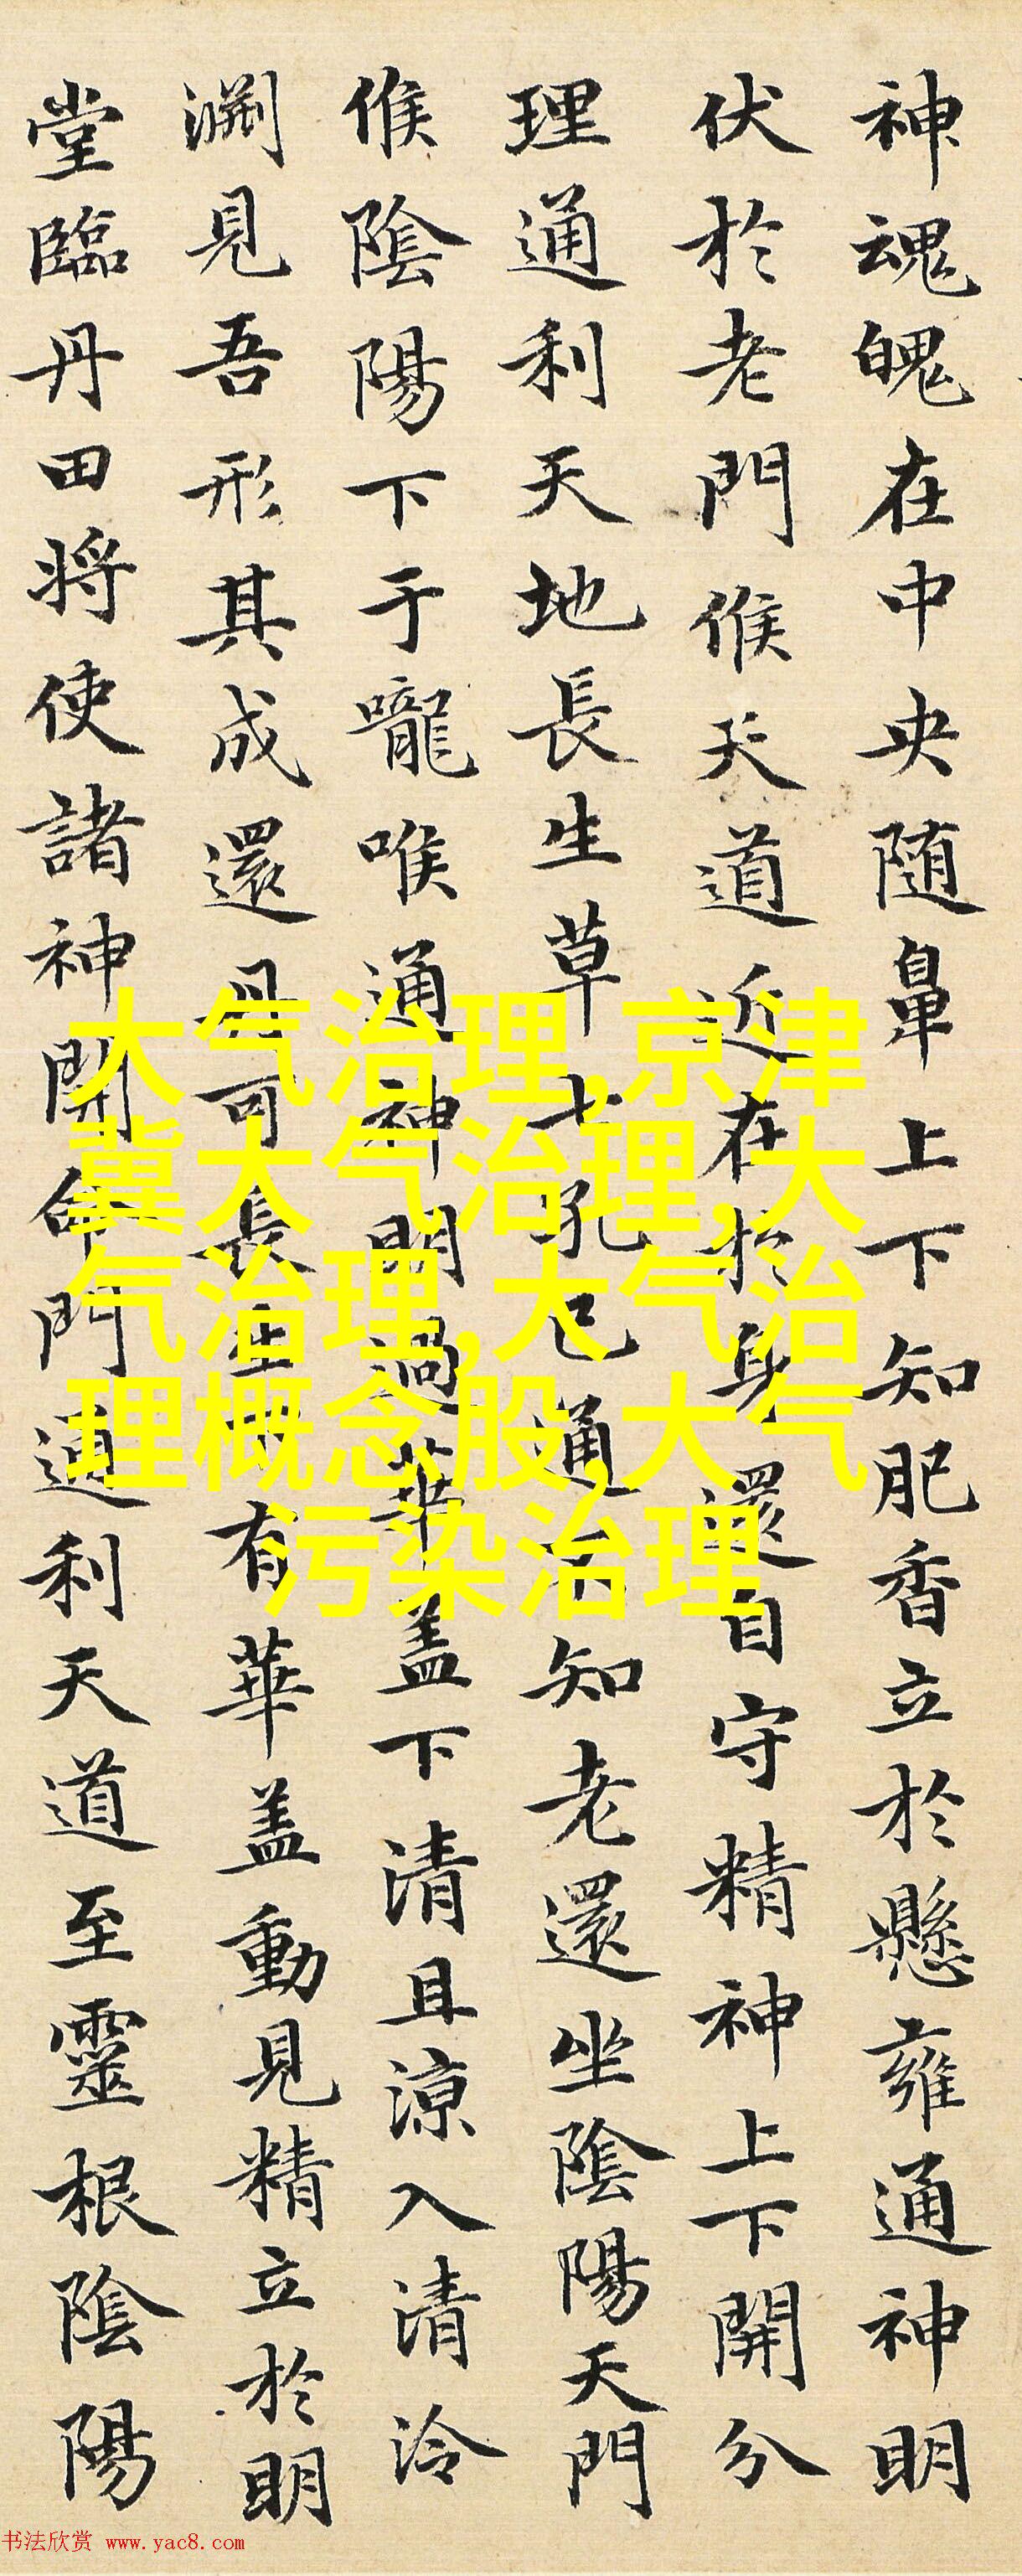 神魂魄在中央随鼻上下知肥香立於懸雍通神明
伏於老門候天道近在於身還自守精神上下開分
理通利天地長生草七孔已通不知老還坐陰陽天門
候陰陽下于嚨喉通神明過華盖下清且涼入清泠
渊見吾形其成還丹可長生还有華盖動見精立於明
堂臨丹田将使諸神開命門通利天道至靈根陰陽
大气治理,京津
冀大气治理,大
气治理,大气治
理概念股,大气
污染治理
书法欣赏 www.yac8.com